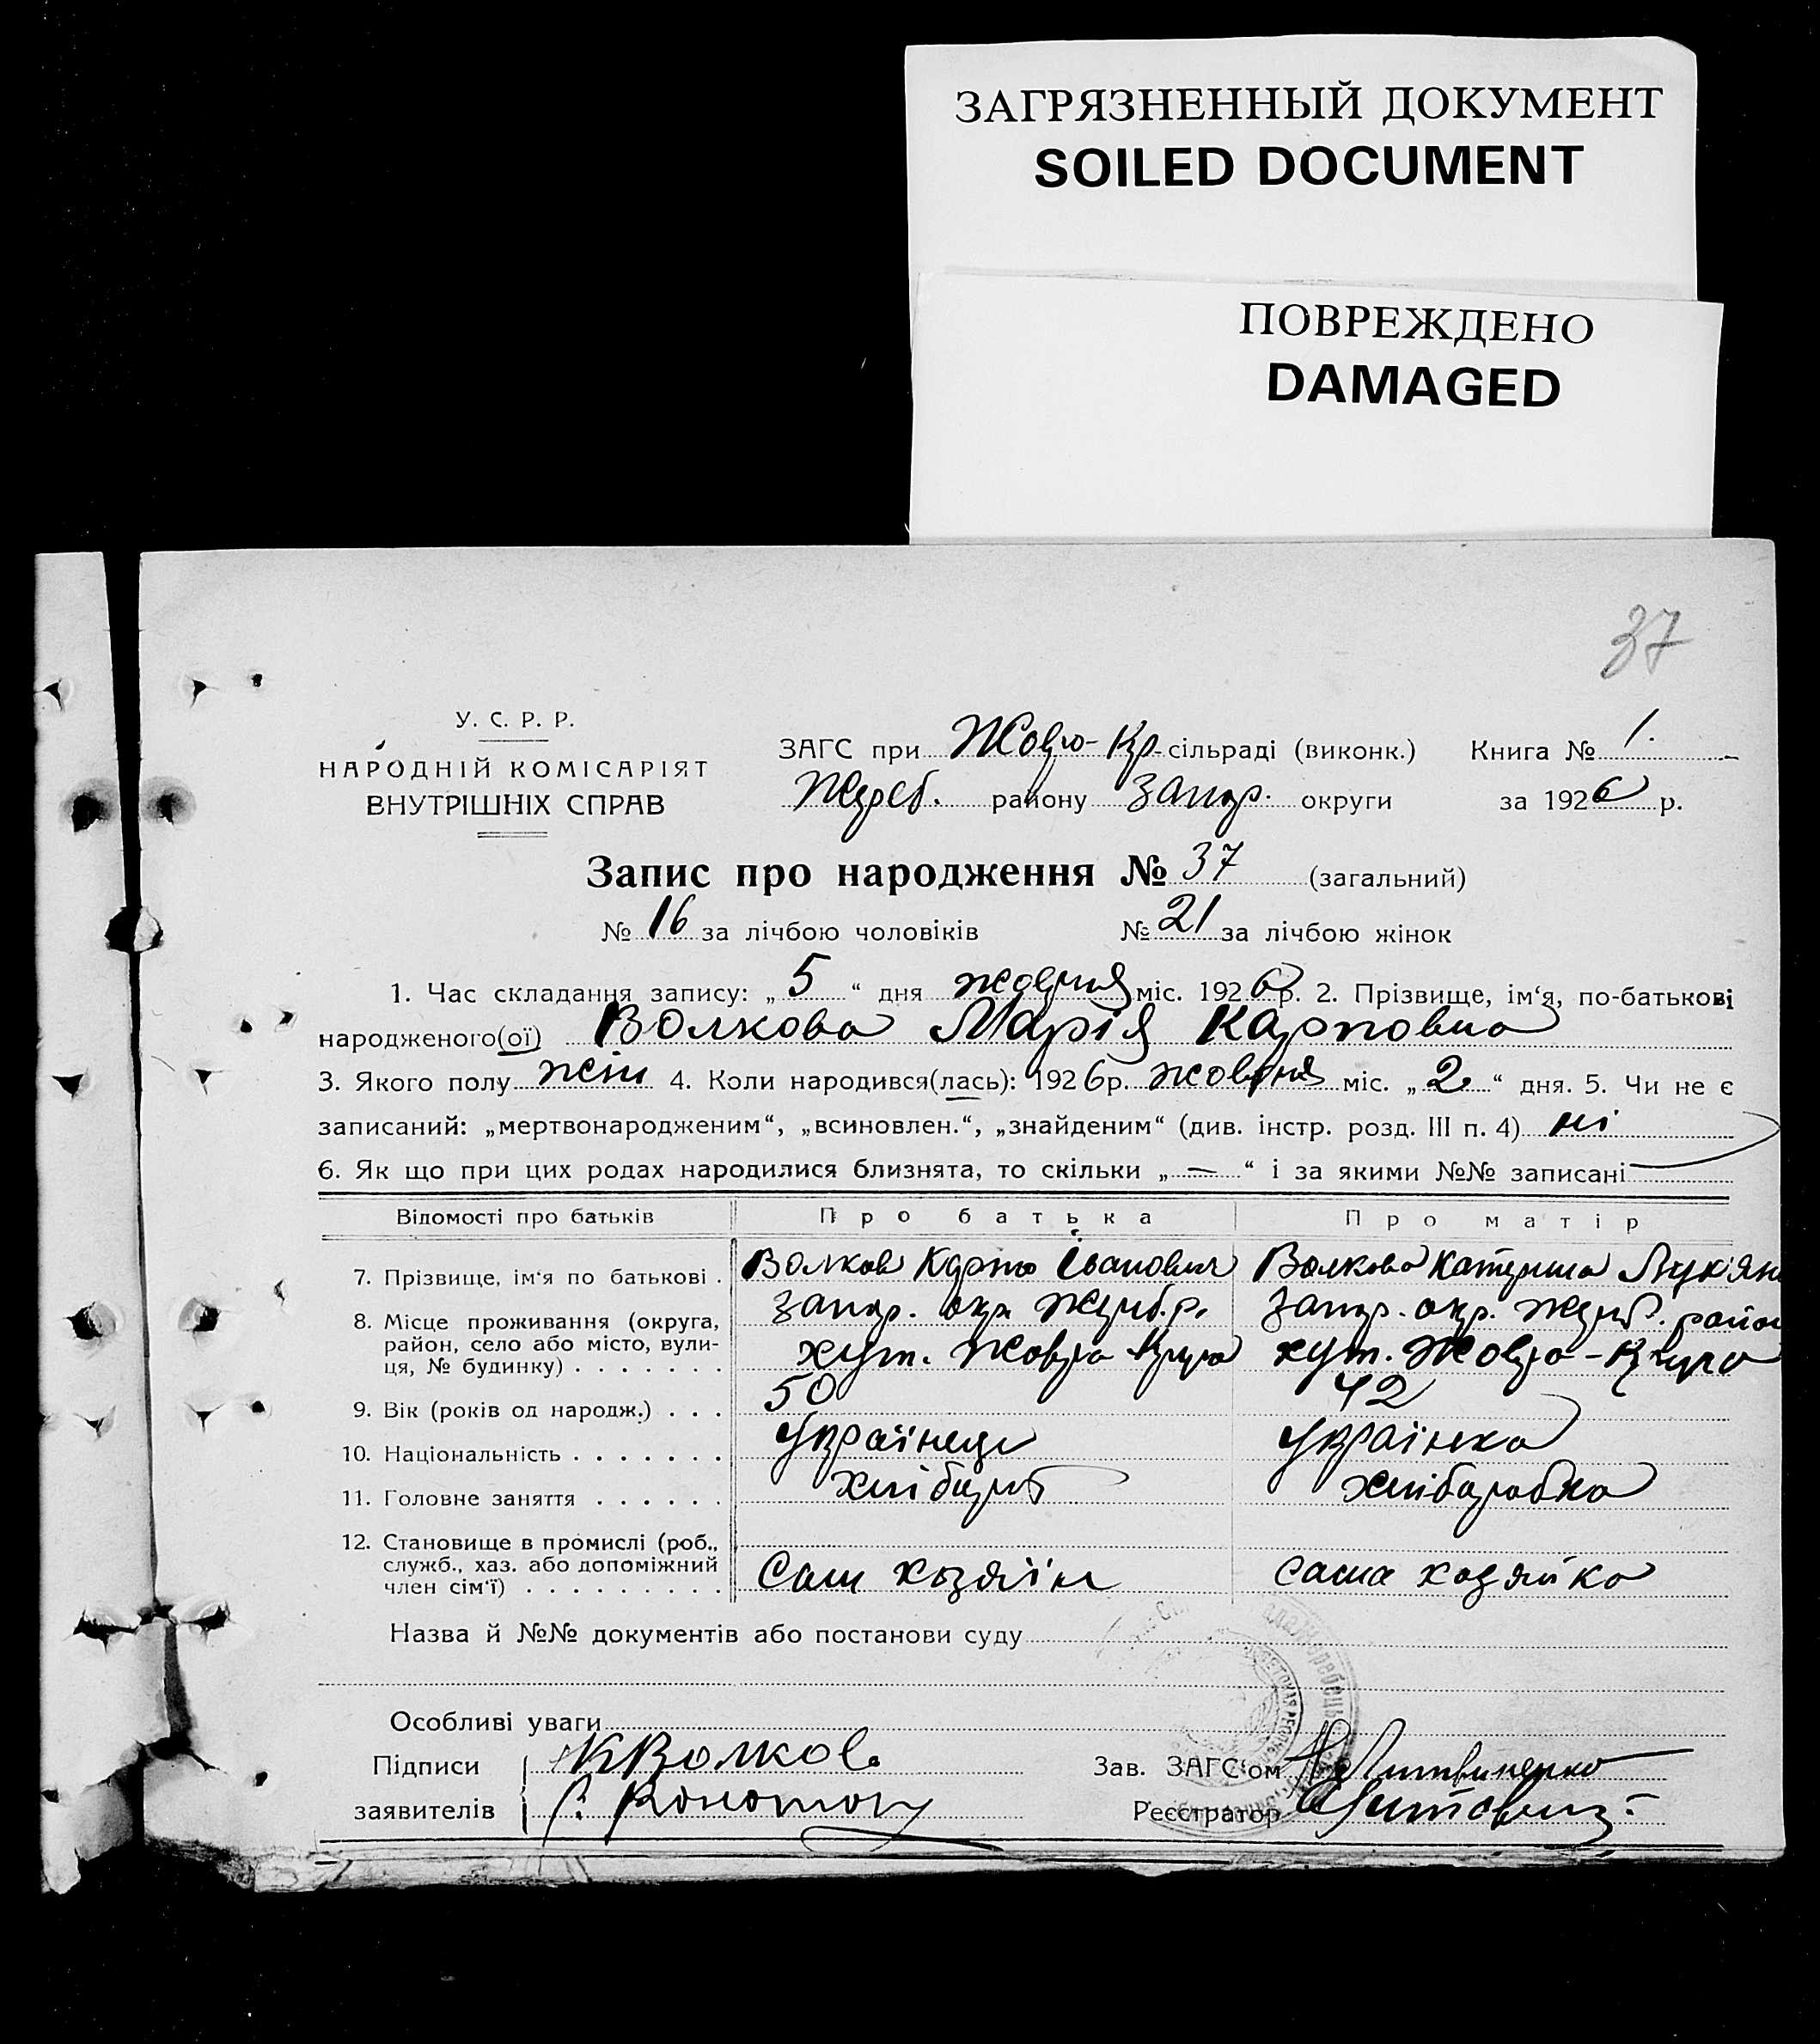 ЗАГРЯЗНЕННЫЙ ДОКУМЕНТ
SOILED DOCUMENT
ПОВРЕЖДЕНО
DAMAGED
37
У. С. Р. Р.
НАРОДНІЙ КОМІСАРІЯТ
ВНУТРІШНІХ СПРАВ
ЗАГС при Жовто-Кр. сільраді (виконк.) Книга № 1.
Жереб. району Запор. округи за 1926 р.
Запис про народження № 37 (загальний)
№ 16 за лічбою чоловіків № 21 за лічбою жінок
1. Час складання запису: „5“ дня жовтня міс. 1926 р. 2. Прізвище, ім‘я, по-батькові
народженого(ої) Волкова Марія Карповна
3. Якого полу жін 4. Коли народився(лась): 1926 р. жовтня міс. „2“ дня. 5. Чи не є
записаний: „мертвонародженим“, „всиновлен.“, „знайденим“ (див. інстр. розд. III п. 4) ні
6. Як що при цих родах народилися близнята, то скільки „—“ і за якими №№ записані
Відомості про батьків Про батька Про матір
7. Прізвище, ім‘я по батькові . Волков Карпо Іванович Волкова Катерина Лук'ян
8. Місце проживання (округа, Запор. окр. Жереб. р. Запор. окр. Жереб. район
район, село або місто, вули-
ця, № будинку) . . . . . . . хут. Жовта Круча хут. Жовта-Круча
9. Вік (років од народж.) . . . 50 42
10. Національність . . . . . . . Українець Українка
11. Головне заняття . . . . . . хлібороб хліборобка
12. Становище в промислі (роб.,
служб., хаз. або допоміжний
член сім‘ї) . . . . . . . . . Сам хозяїн сама хозяйка
Назва й №№ документів або постанови суду
Особливі уваги
Підписи К Волков Зав. ЗАГС‘ом Литвиненко
заявителів Реєстратор